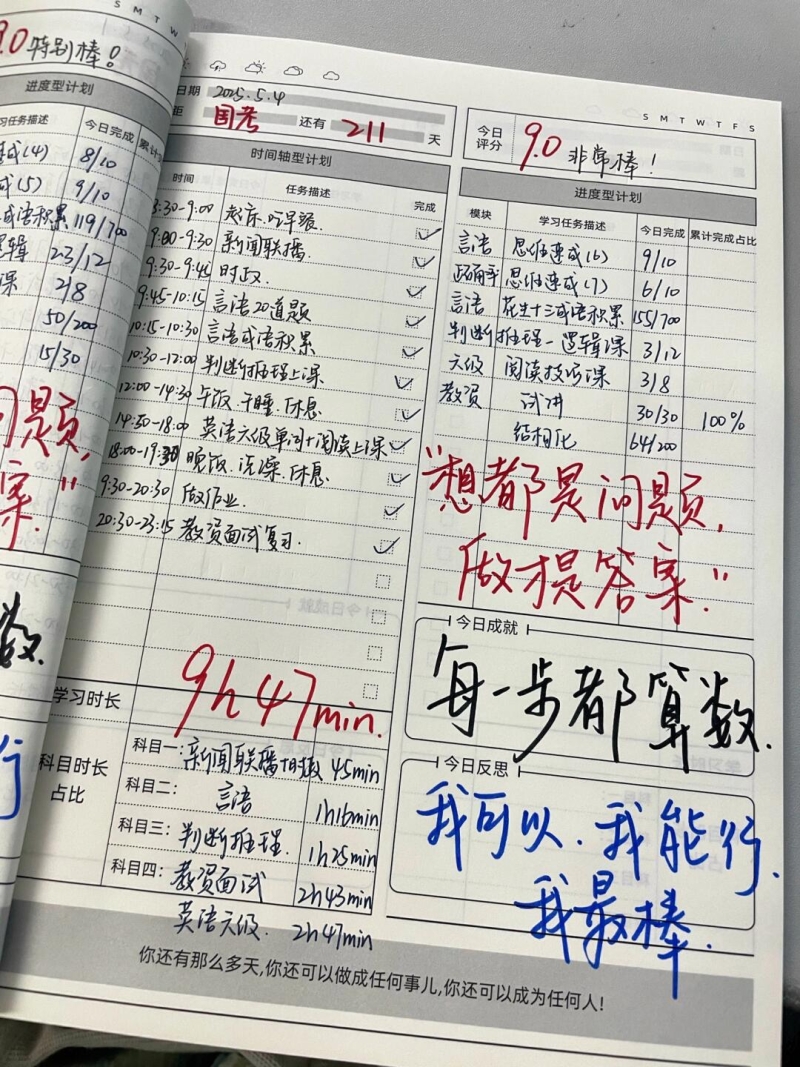 S M T W
9.0 特别棒!
进度型计划
习任务描述 今日完成 累计
速成(4) 8/10
成(5) 9/10
成语积累 119/700
逻辑 23/12
课 2/8
50/200
15/30
问题,
案."
数.
行
日期 2025.5.4
距 国考 还有 211 天
时间轴型计划
时间 任务描述 完成
8:30-9:00 起床.吃早饭.
9:00-9:30 新闻联播.
9:30-9:45 时政.
9:45-10:15 言语20道题
10:15-10:30 言语成语积累
10:30-12:00 判断推理上课
12:00-14:30 午饭.午睡.休息
14:30-18:00 英语六级单词+阅读上课
18:00-19:30 晚饭.洗澡.休息.
9:30-20:30 做作业.
20:30-23:15 教资面试复习.
学习时长 9h 47min.
科目时长占比
科目一: 新闻联播时政 45min
科目二: 言语 1h16min
科目三: 判断推理. 1h25min
科目四: 教资面试 2h43min
英语六级. 2h47min
S M T W T F S
今日评分 9.0 非常棒!
进度型计划
模块 学习任务描述 今日完成 累计完成占比
言语 思维速成(6) 9/10
思维速成(7) 6/10
言语 花生十三成语积累 155/700
判断 推理-逻辑课 3/12
六级 阅读技巧课 3/8
教资 试讲 30/30 100%
结构化 64/200
"想都是问题,
做才是答案."
今日成就
每一步都算数.
今日反思
我可以.我能行.
我最棒.
你还有那么多天,你还可以做成任何事儿,你还可以成为任何人!